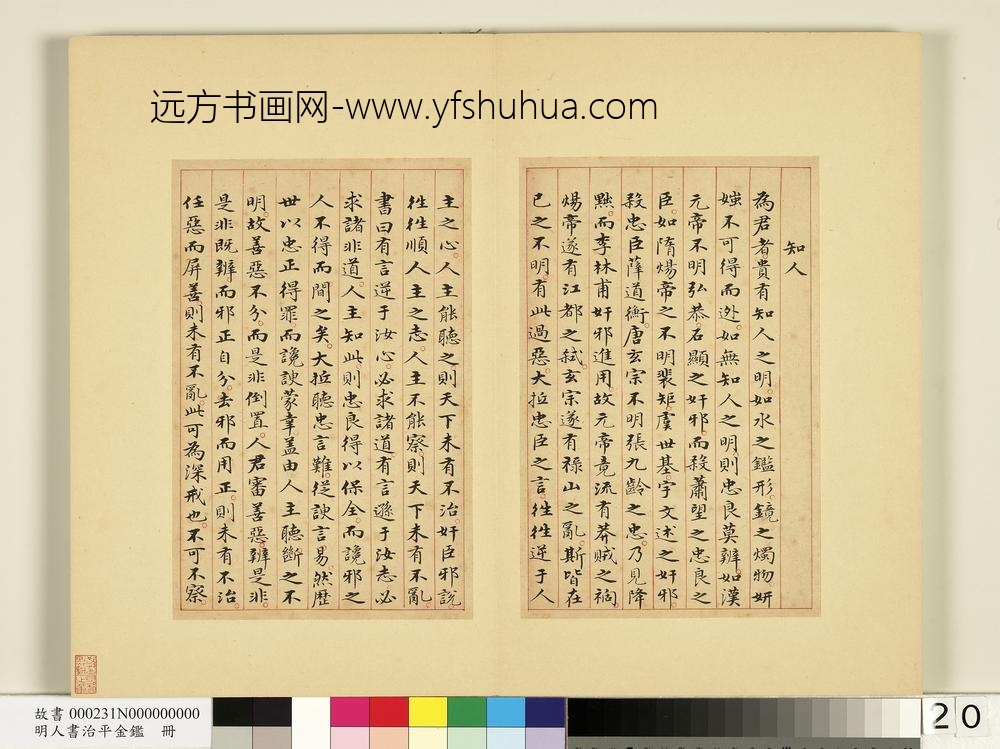 远方书画网-www.yfshuhua.com
知人
為君者貴有知人之明如水之鑑形鏡之燭物妍
媸不可得而逃如無知人之明則忠良莫辨如漢
元帝不明弘恭石顯之奸邪而殺蕭望之忠良之
臣如隋煬帝之不明裴矩虞世基宇文述之奸邪
殺忠臣薛道衡唐玄宗不明張九齡之忠乃見降
黜而李林甫奸邪進用故元帝竟流有莽賊之禍
煬帝遂有江都之弒玄宗遂有祿山之亂斯皆在
已之不明有此過惡大抵忠臣之言徃徃逆于人
主之心人主能聽之則天下未有不治奸臣邪説
徃徃順人主之志人主不能察則天下未有不亂
書曰有言逆于汝心必求諸道有言遜于汝志必
求諸非道人主知此則忠良得以保全而讒邪之
人不得而間之矣大抵聽忠言難從諛言易然歷
世以忠正得罪而讒諛蒙幸盖由人主聽斷之不
明故善惡不分而是非倒置人君審善惡辨是非
是非既辨而邪正自分去邪而用正則未有不治
任惡而屏善則未有不亂此可為深戒也不可不察
故書 000231N000000000
明人書治平金鑑 冊
20